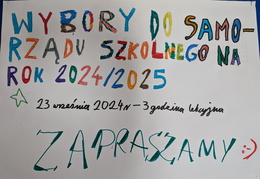 WYBORY DO SAMO-
RZĄDU SZKOLNEGO NA
ROK 2024/2025
23 września 2024r - 3 godzina lekcyjna
ZAPRASZAMY :)